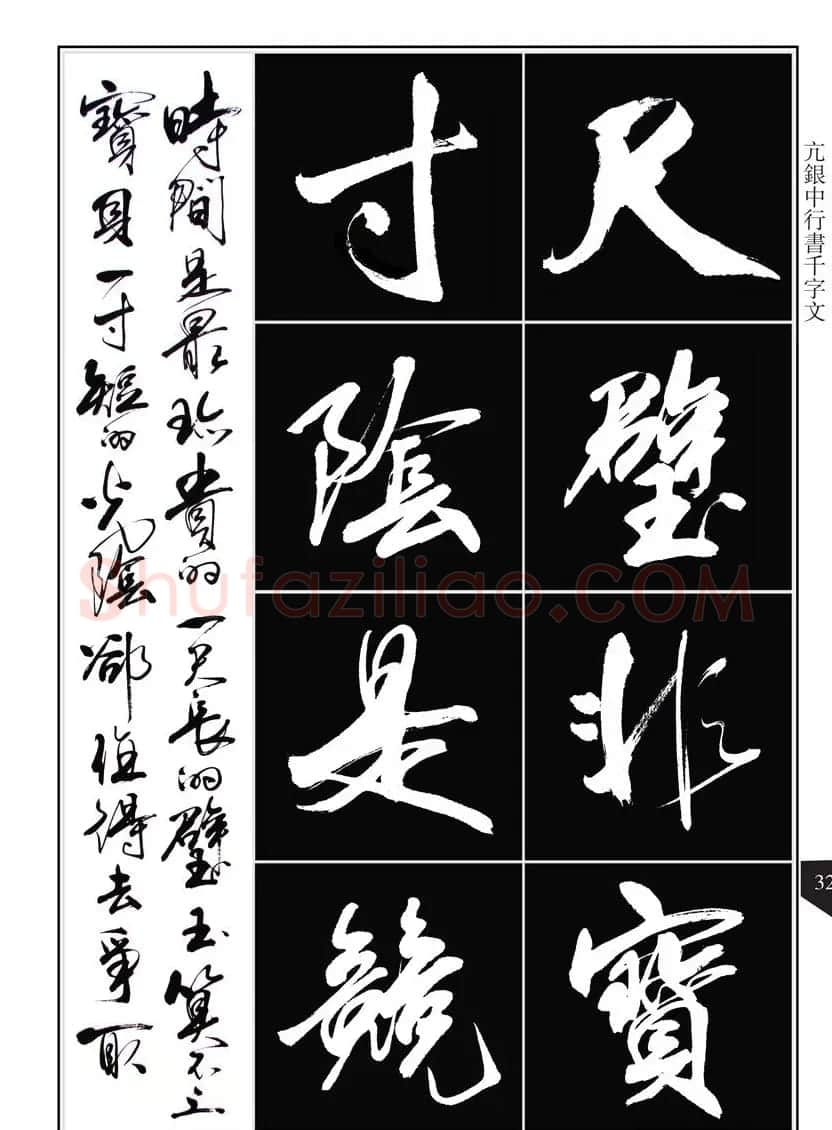 亢銀中行書千字文
32
尺璧非寶
寸陰是競
時間是最珍貴的一尺長的璧玉算不上
寶貝一寸短的光陰卻值得去爭取
Shufaziliao.COM